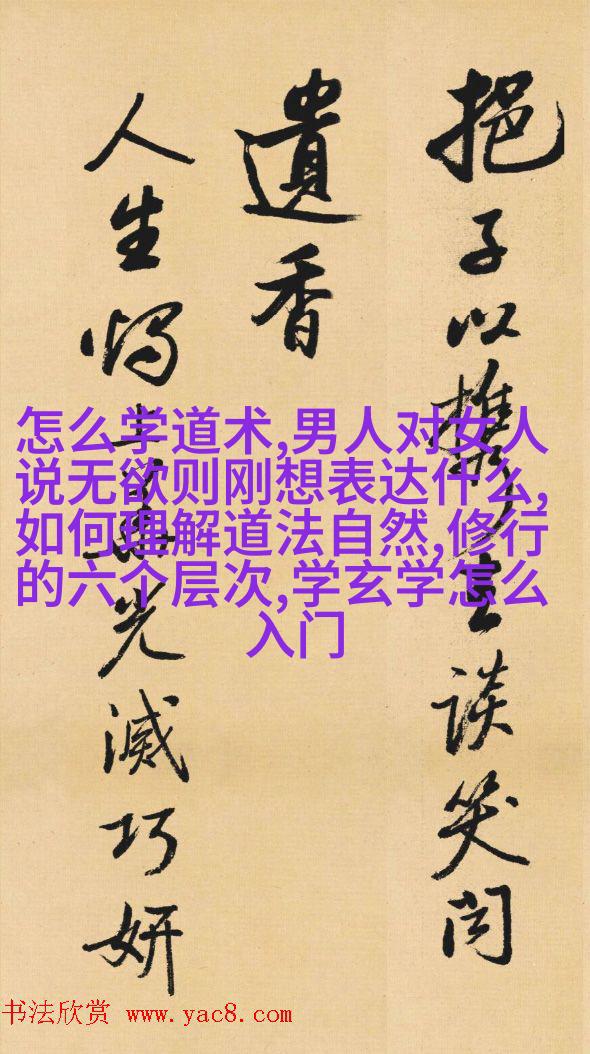 挹子以談笑
遺香
人生燭上華光滅巧妍
怎么学道术,男人对女人
说无欲则刚想表达什么,
如何理解道法自然,修行
的六个层次,学玄学怎么
入门
书法欣赏 www.yac8.com